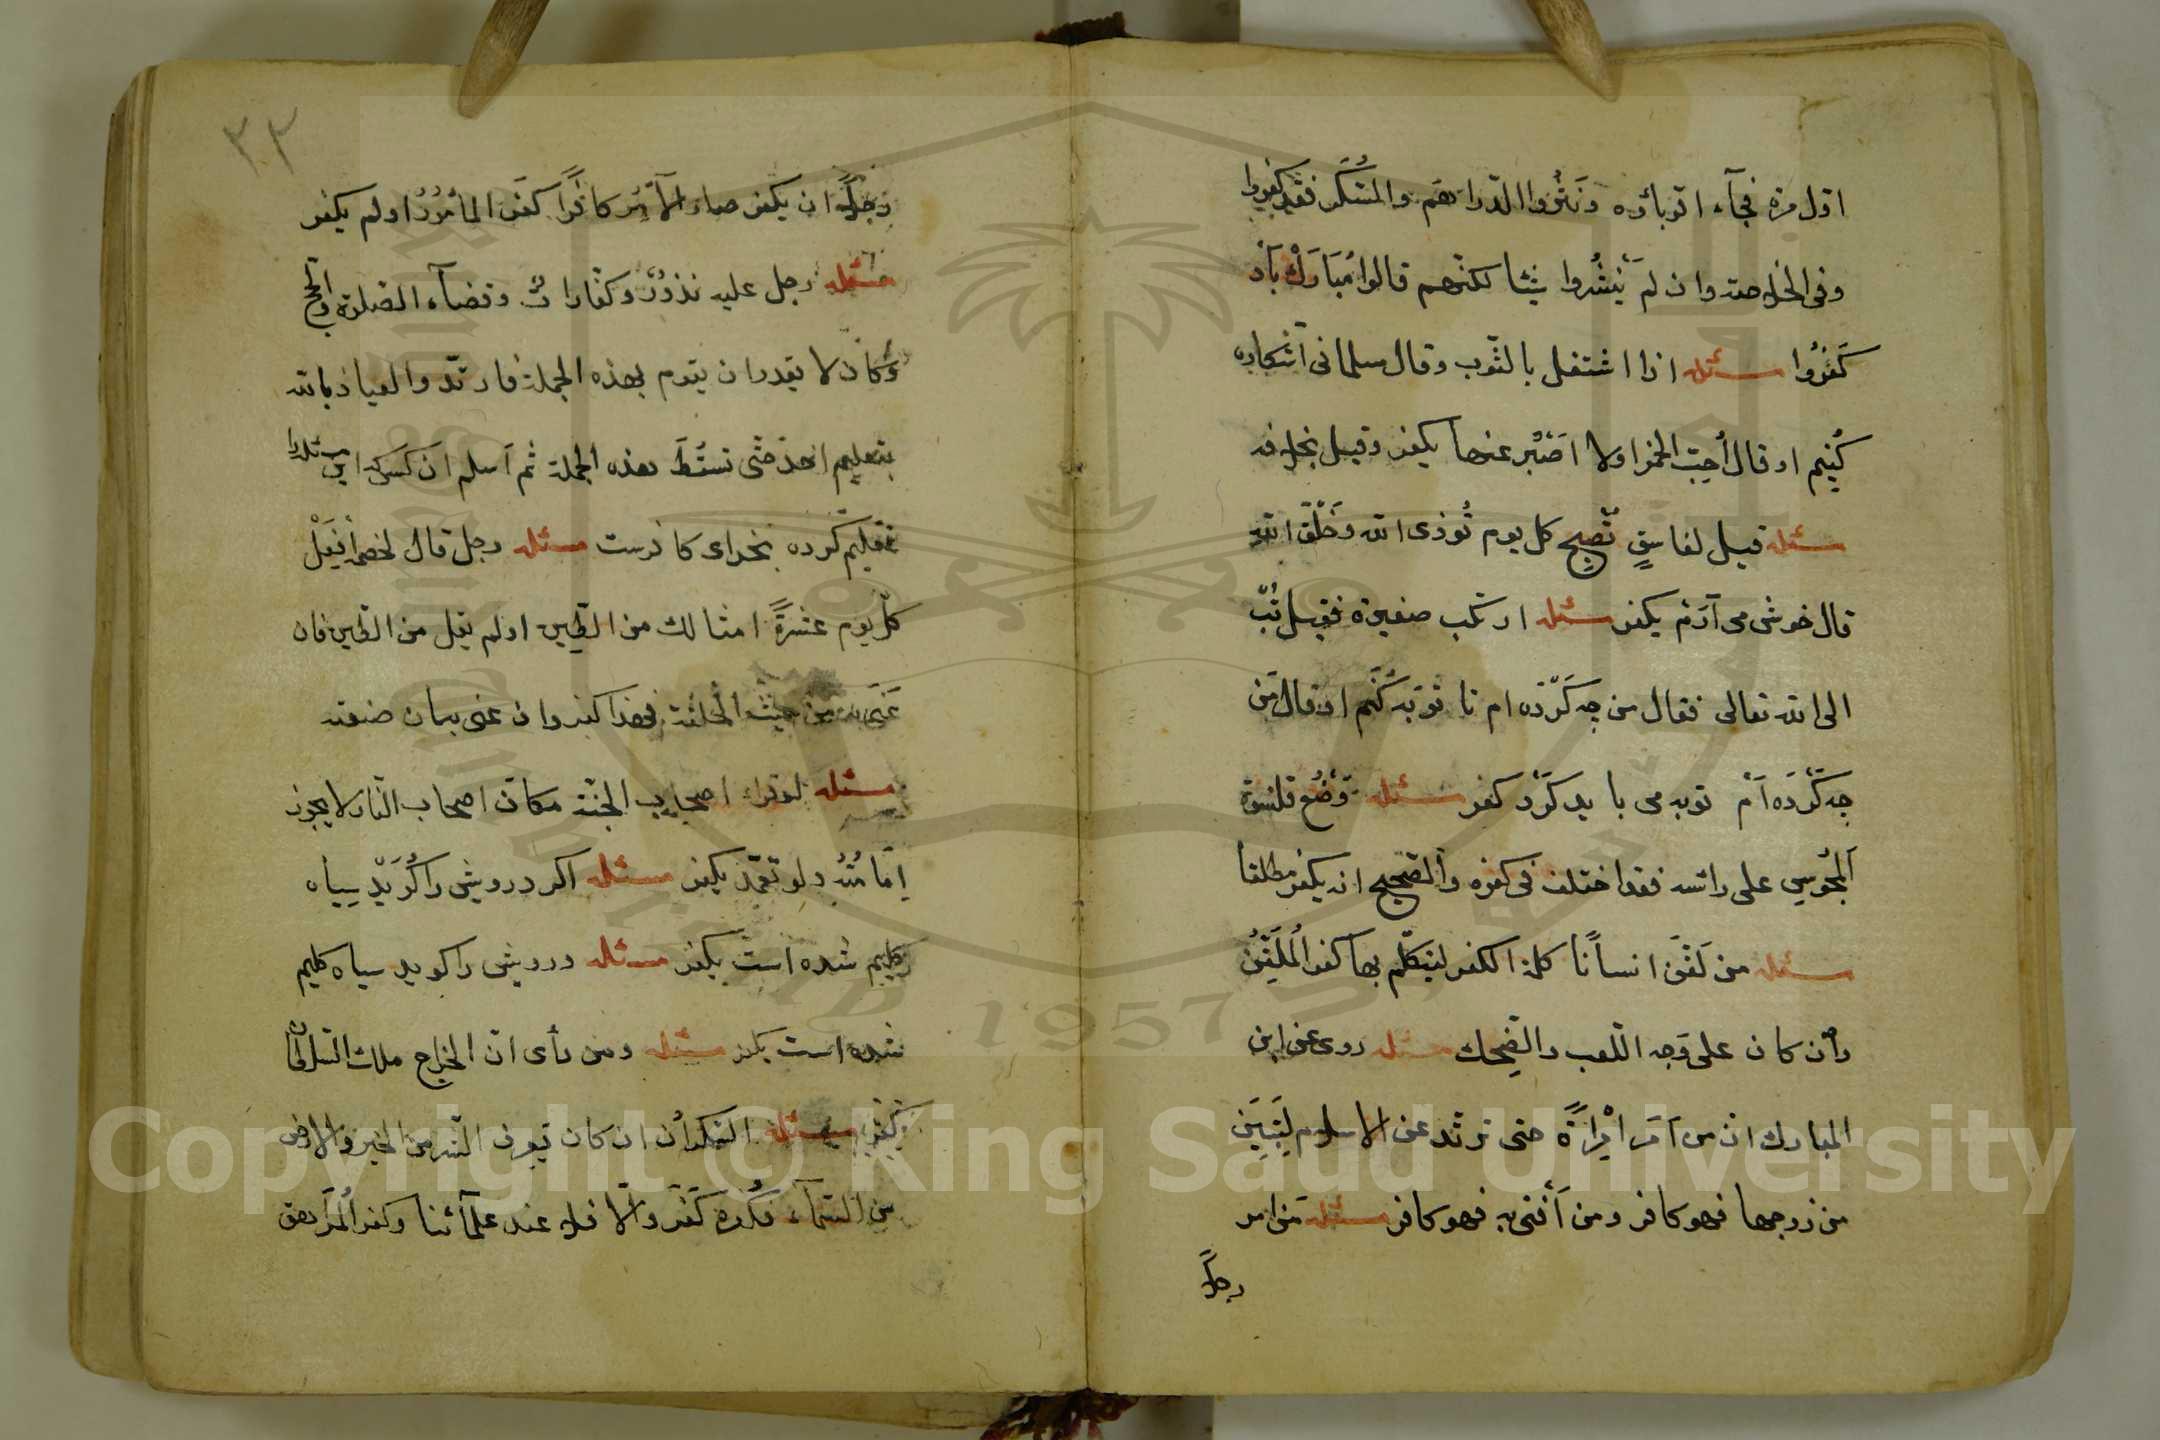 اول مرة فجآء اقرباؤه ونثروا الدراهم والسُّكَّر فقد كفروا
وفى الخلاصة وان لم ينثروا شيئا لكنهم قالوا مُبَارَكْ بَادْ
كَفَرُوا مسئله اذا اشتغل بالشرب وقال مسلمانى آشكاره
كُنيم او قال اُحِبّ الخمر او لا اَصْبُر عنها يكفر وقيل بخلافه
مسئله قيل لفاسقٍ تُصْبِح كل يوم تُوذى الله وخَلْقَ الله
قال خوش مى آرَمْ يكفر مسئله ارتكب صغيرة فقيل تُبْ
الى الله تعالى فقال من چه كَرْدَه ام تا توبه كُنَم او قال مَن
چه كَرْدَه اَمْ توبه مى بايد كَرْد كفر مسئله وَضَعَ قلنسوة
المجوسي على رائسه فقد اختلف فى كفره والصحيح انه يكفر مطلقا
مسئله من لَقَّنَ انسانًا كلمة الكفر ليتكلّم بها كفر المُلَقِّنُ
وأن كان على وَجه اللّعب والضِّحك مسئله روى عن ابن
المبارك ان من اَمَرَ امْرَأةً حتى ترتد عن الاسلام لِتَبِينَ
من زوجها فهو كافر ومن اَفتى به فهو كافر مسئله مَن امر
رجلًا
٣٣
رجلًا ان يكفر صار الآمِر كافرًا كفر المأمُوْرُ او لم يكفر
مسئله رجل عليه نذورٌ وكفّاراتٌ وقضآء الصلوة والحج
وكان لا يقدر ان يقوم بهذه الجملة فارتد والعياذ بالله
بتعليم احد حتى تسقُطَ هذه الجملة ثم اَسلم ان كسى كه اين مسئله را
تعليم كرده بخداى كافرست مسئله رجل قال لخصمه اَفعَلْ
كلّ يوم عشرةً امثالك من الطين او لم يقل من الطين فان
عَنَى به من حيث الخلقة فهذا كفر وان عنى بيان ضعفه
مسئله لو قرأ اصحاب الجنّة مكان اصحاب النّار لا يجوز
اِمَامَتُهُ ولو تعمّد يكفر مسئله اكر درويشى را كُوَيَدْ سِياه
كليم شده است يكفر مسئله درويشى را كويد سياه كليم
شده است يكفر مسئله ومن رأى ان الخراج ملك السلطان
يكفر مسئله السكرأن ان كان يعرف الشر من الخير والارض
من السّمآء فكُفره كَفَرَ والّا فلا عند علمآئنا وكفر المراهق
Copyright © King Saud University
1957